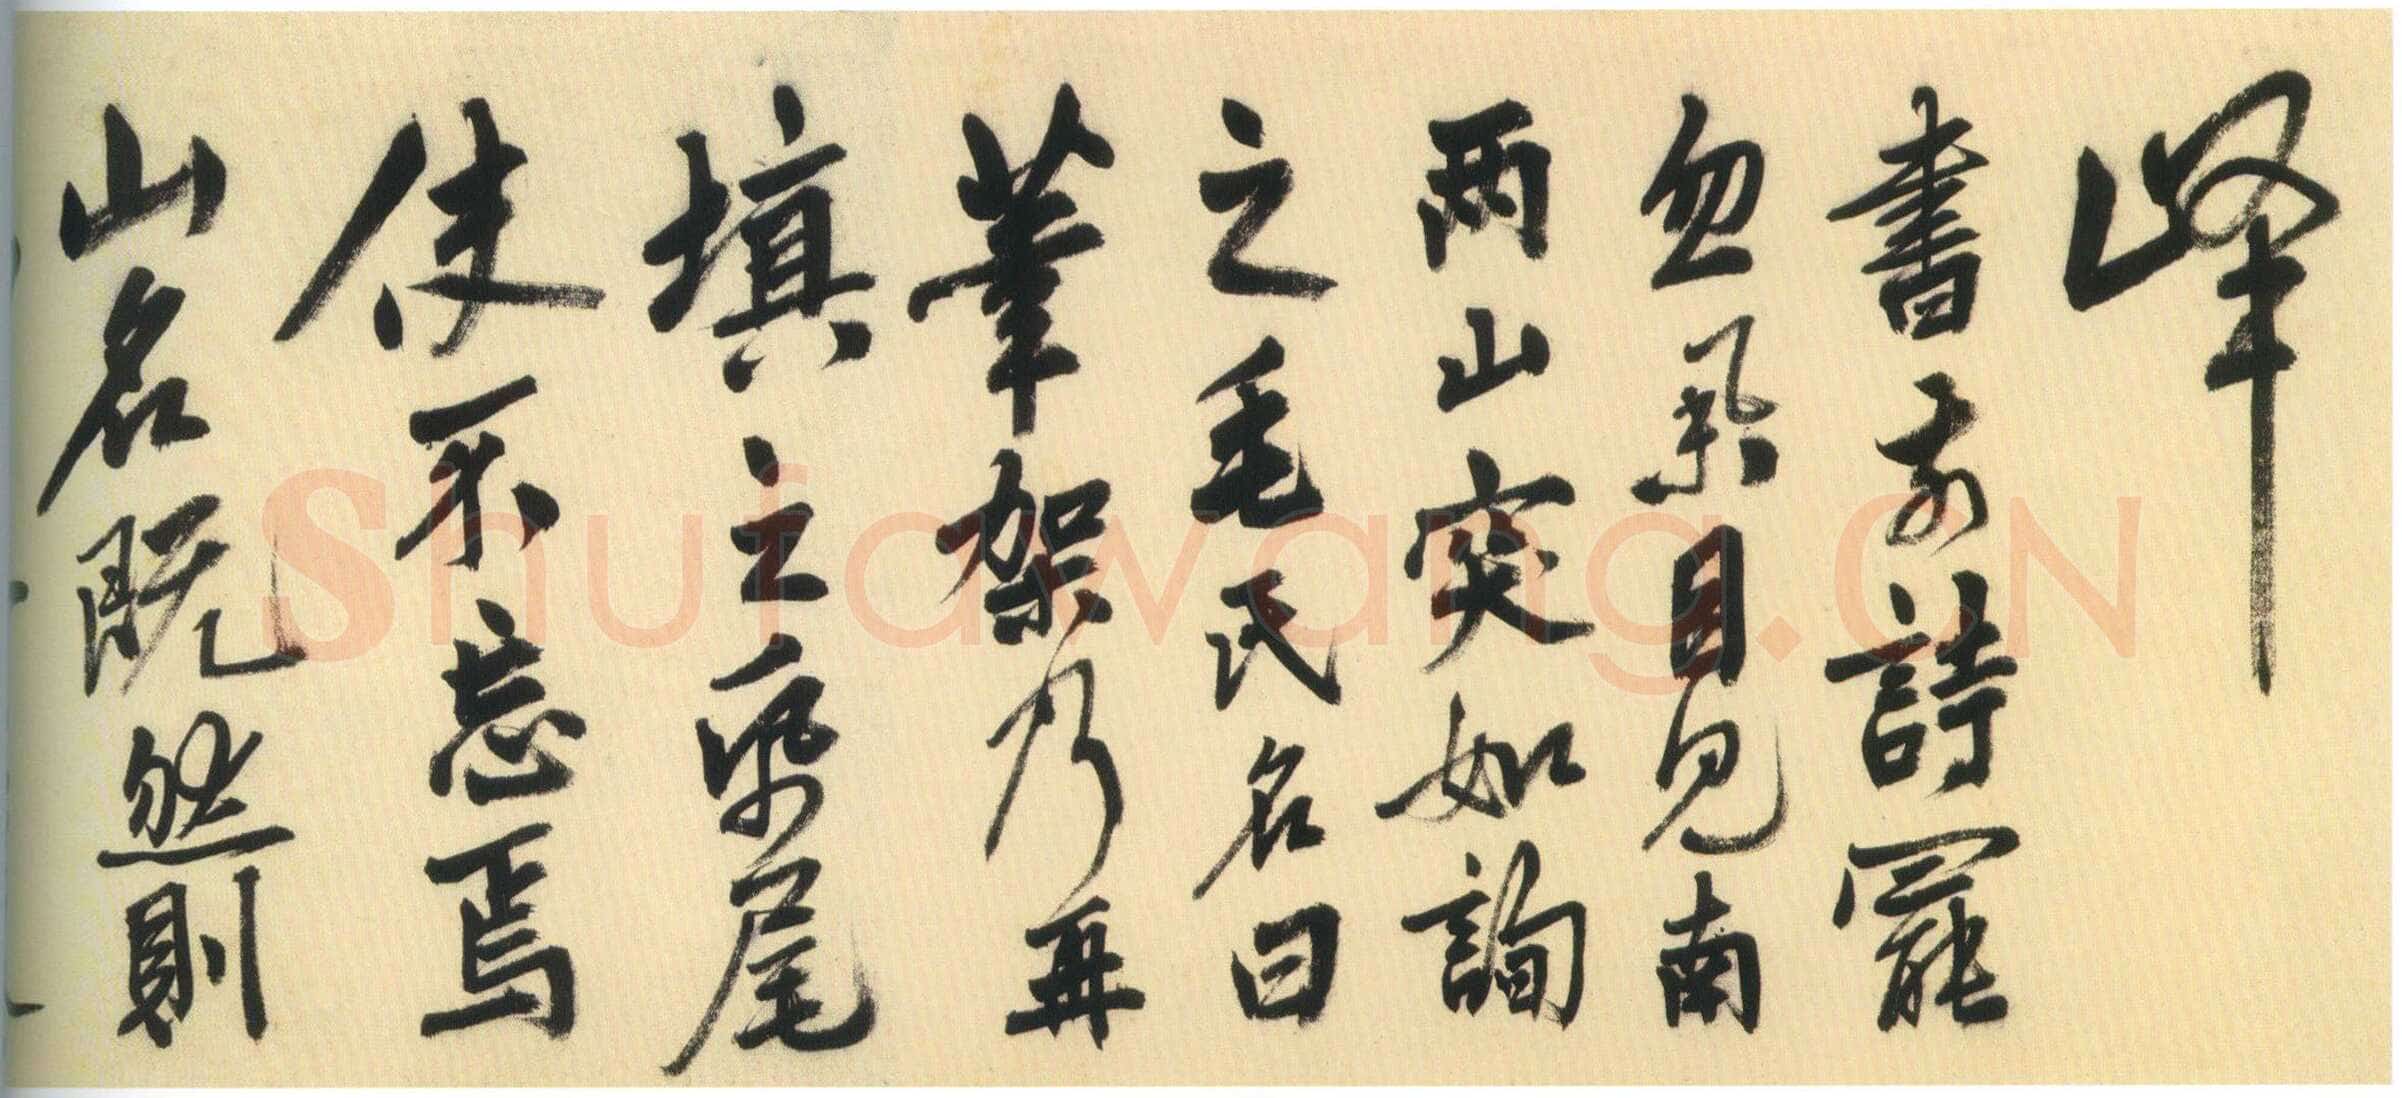 峰
書前詩罷
忽舉目見南
兩山突如詢
之毛氏名曰
筆架乃再
填之染尾
使不忘焉
山名既然則
Shufawang.CN